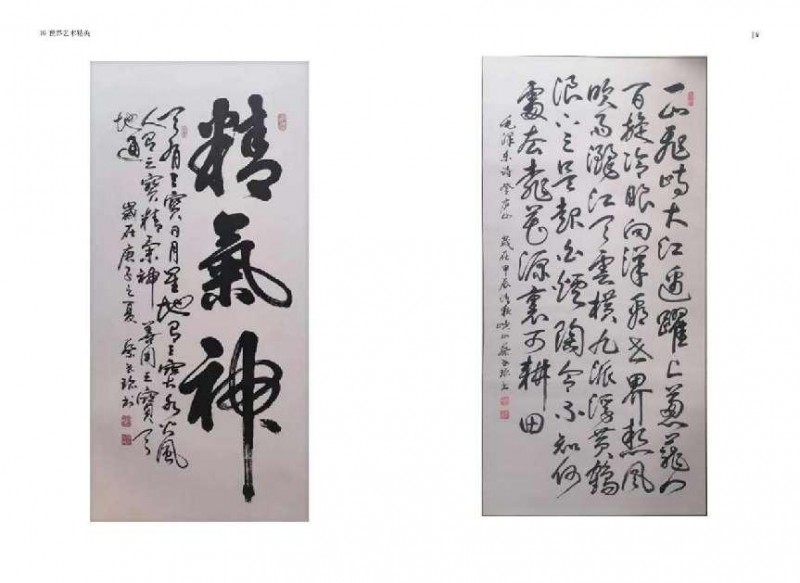 世界艺术
精氣神
天有三寶日月星地有三寶水火風
人有三寶精氣神善用三寶天
地通 歲在庚子之夏 蔡
一山飛峙大江邊躍上葱蘢四
百旋冷眼向洋看世界熱風
吹雨灑江天雲橫九派浮黃鶴
浪下三吳起白煙陶令不知何
處去桃花源裏可耕田
毛澤东诗登庐山 歲在甲辰清秋 蔡